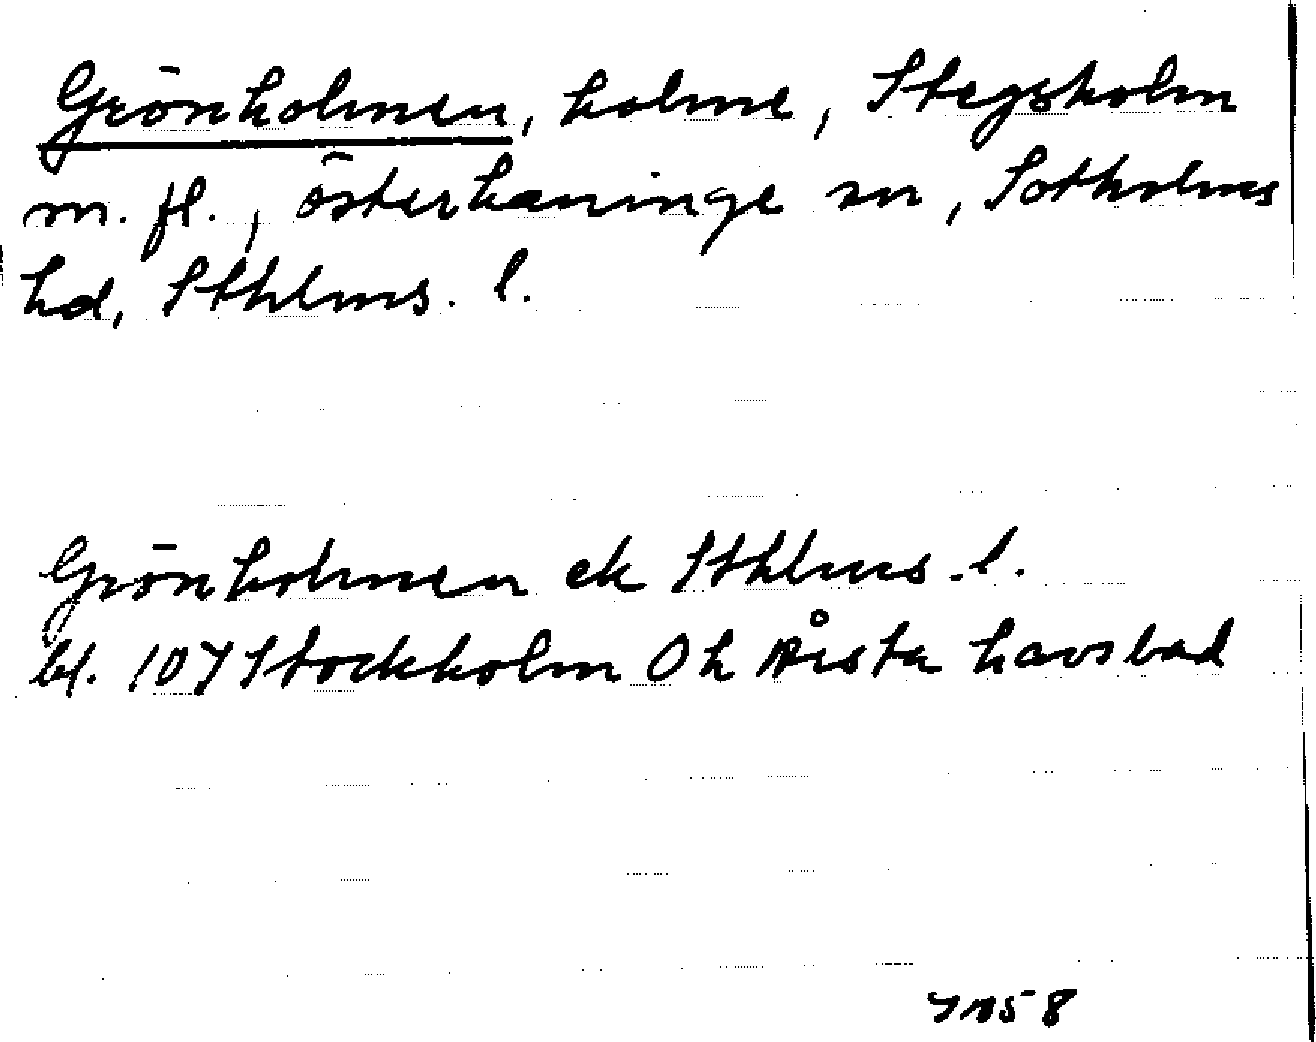 Grönholmen, holme, Stegsholm
m. fl., Österhaninge sn, Sotholms
hd, Sthlms. l.
Grönholmen ek Sthlms. l.
bl. 107 Stockholm Oh Årsta havsbad